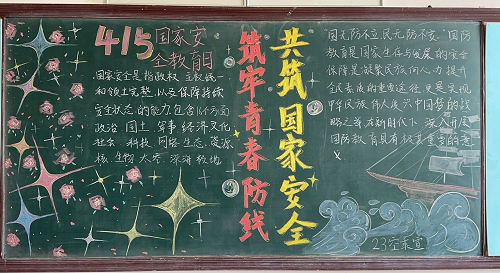 415 国家安
全教育日
国家安全是指政权、主权、统一
和领土完整,以及保障持续
安全状态的能力,包含16个方面
政治 国土 军事 经济 文化
社会 科技 网络 生态 资源
核、生物 太空 深海 极地
筑牢青春防线
共筑国家安全
国无防不立,民无防不安,“国防
教育是国家生存与发展的安全
保障,是凝聚民族向心力,提升
全民素质的重要途径,更是实现
中华民族伟大复兴中国梦的战
略之举,在新时代下,深入开展
国防教育具有极其重要的意
义
23空乘宣